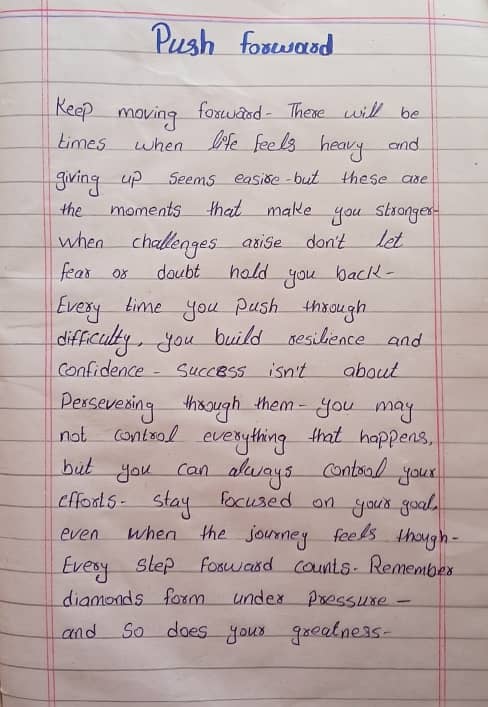 Push forward
Keep moving forward- There will be
times when life feels heavy and
giving up seems easise-but these are
the moments that make you stronger-
when challenges arise don't let
fear or doubt hold you back-
Every time you push through
difficulty, you build resilience and
Confidence - Success isn't about
Persevering through them- you may
not control everything that happens,
but you can always control your
efforts- stay focused on your goal,
even when the journey feels though-
Every step forward counts. Remember
diamonds form under pressure -
and So does your greatness-